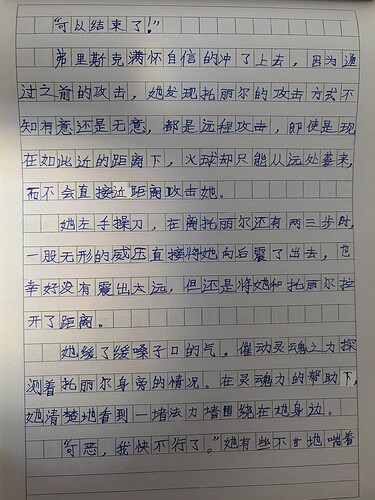 “可以结束了!”
弗里斯克满怀自信的冲了上去，因为通
过之前的攻击，她发现托丽尔的攻击方式不
知有意还是无意，都是远程攻击，即使是现
在如此近的距离下，火球却只能从远处袭来，
而不会直接近距离攻击她。
她左手操刀，在离托丽尔还有两三步时，
一股无形的威压直接将她向后震了出去，也
幸好没有震出太远，但还是将她和托丽尔拉
开了距离。
她缓了缓嗓子口的气，催动灵魂之力探
测着托丽尔身旁的情况。在灵魂力的帮助下，
她清楚地看到一堵法力墙围绕在她身边。
“可恶，我快不行了。”她有些不甘地喘着